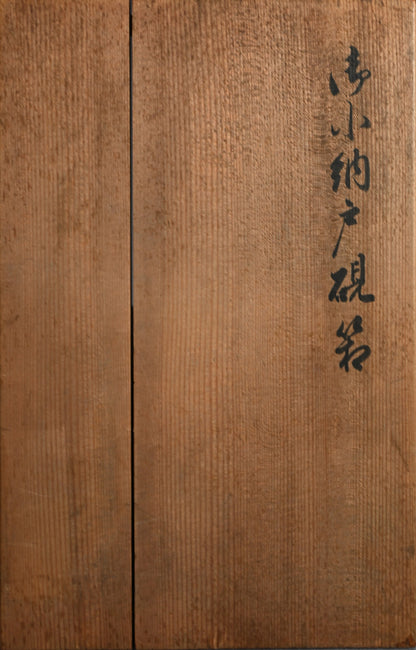 御小納戸硯箱